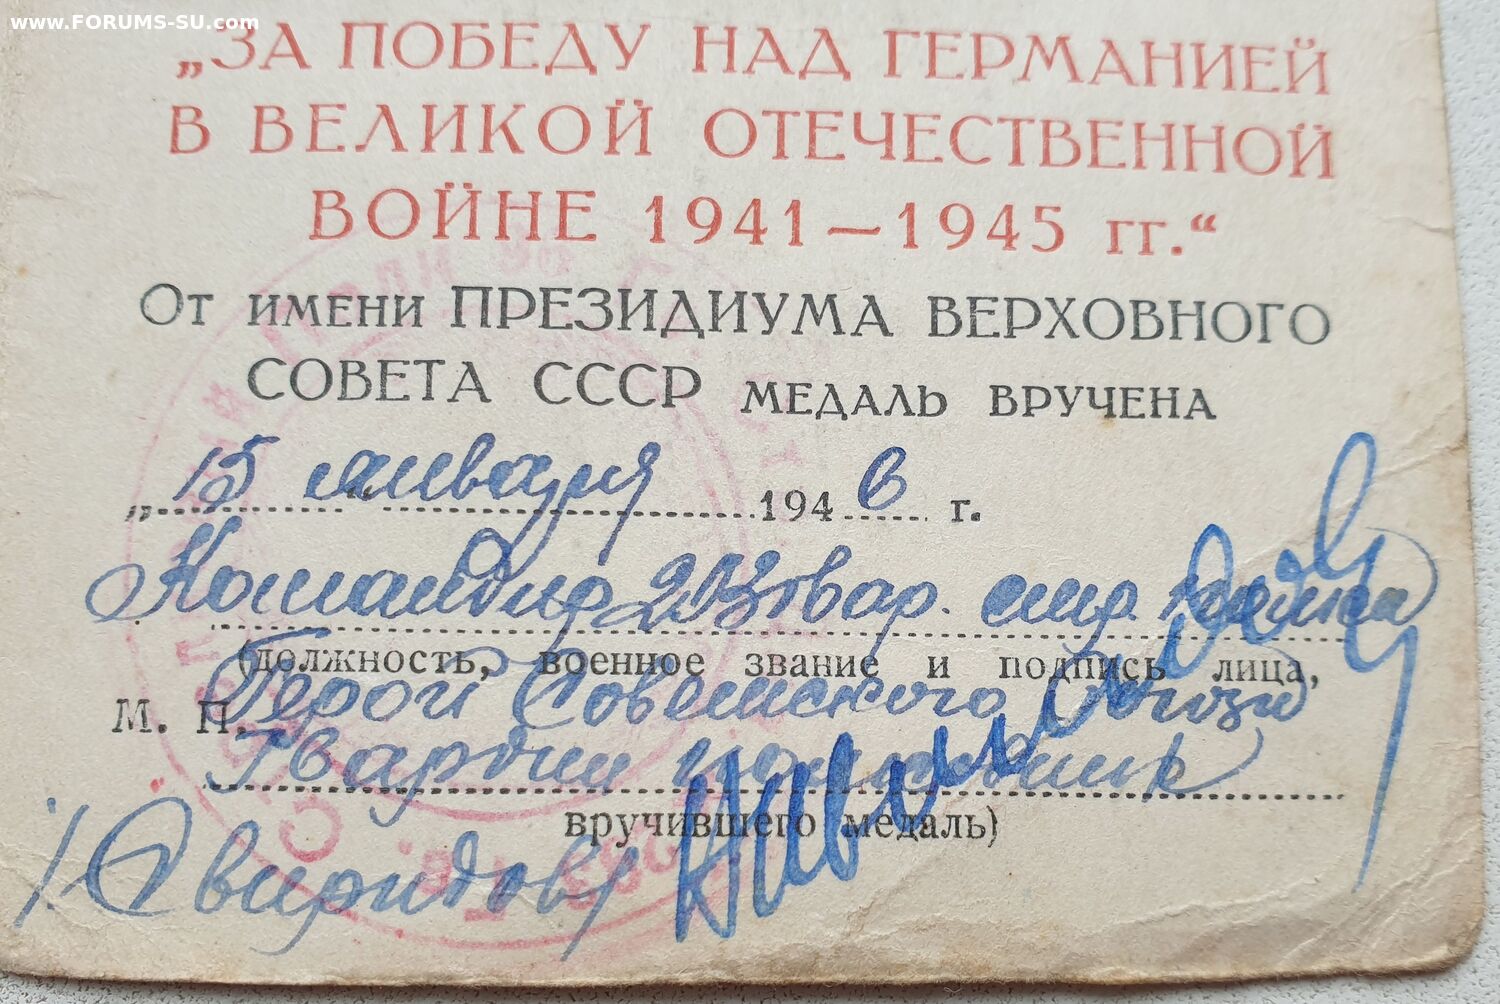 www.FORUMS-SU.com
„ЗА ПОБЕДУ НАД ГЕРМАНИЕЙ
В ВЕЛИКОЙ ОТЕЧЕСТВЕННОЙ
ВОЙНЕ 1941—1945 гг.“
От имени ПРЕЗИДИУМА ВЕРХОВНОГО
СОВЕТА СССР МЕДАЛЬ ВРУЧЕНА
„15“ января 1946 г.
Командир 203 гвар. стр. полка
(должность, военное звание и подпись лица,
Герой Советского Союза
М. П.
Гвардии полковник
вручившего медаль)
/Свиридов/